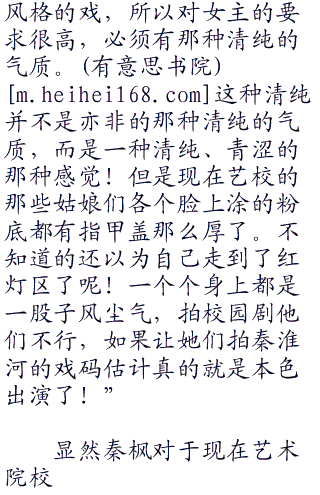 风格的戏，所以对女主的要
求很高，必须有那种清纯的
气质。(有意思书院)
[m.heihei168.com]这种清纯
并不是亦非的那种清纯的气
质，而是一种清纯、青涩的
那种感觉！但是现在艺校的
那些姑娘们各个脸上涂的粉
底都有指甲盖那么厚了。不
知道的还以为自己走到了红
灯区了呢！一个个身上都是
一股子风尘气，拍校园剧他
们不行，如果让她们拍秦淮
河的戏码估计真的就是本色
出演了！”
显然秦枫对于现在艺术
院校